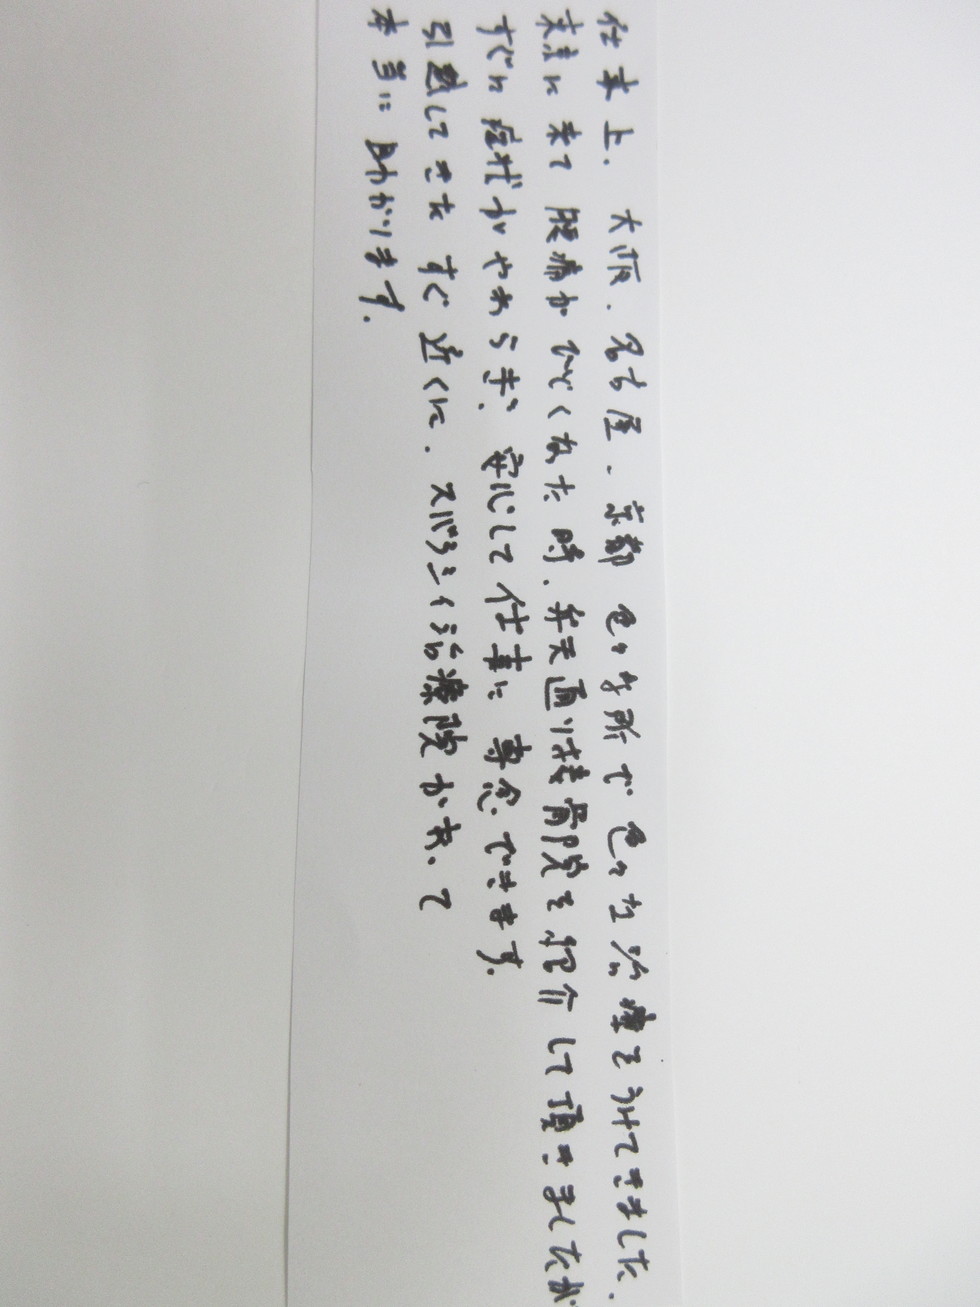 仕事上、大阪、名古屋、京都 色々な所で色々な治療をうけてきました。
東京に来て腰痛がひどくなった時、弁天通り接骨院を紹介して頂きましたが
すぐに症状がやわらぎ、安心して仕事に専念できます。
引越してきたすぐ近くに、スバラシイ治療院があって
本当に助かります。